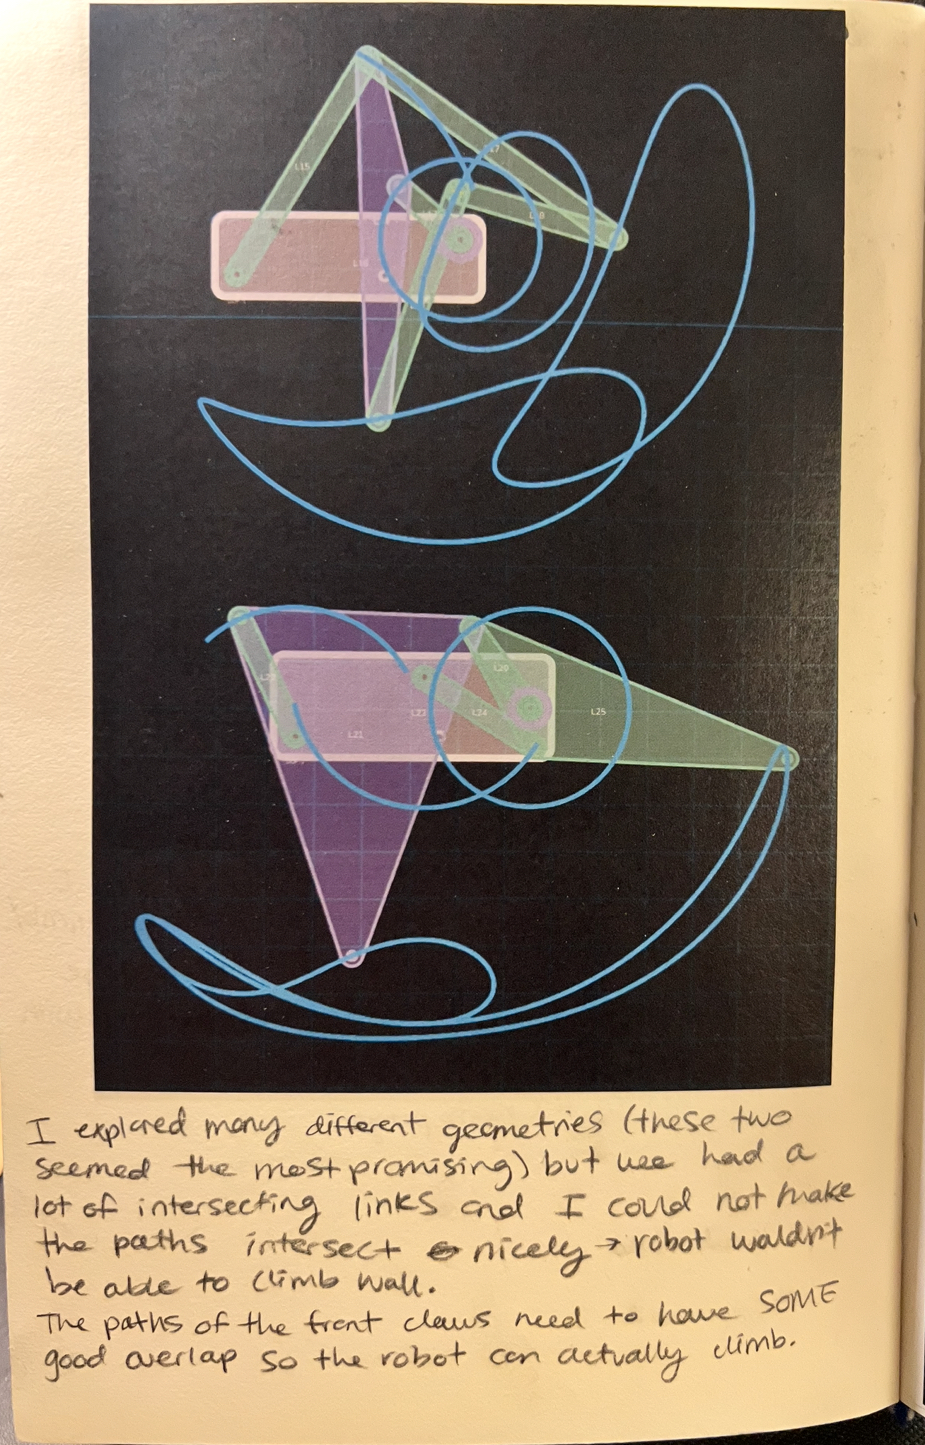 L15
L7
L18
L20
L22
L24
L25
L21
I explored many different geometries (these two
seemed the most promising) but we had a
lot of intersecting links and I could not make
the paths intersect nicely → robot wouldn't
be able to climb wall.
The paths of the front claws need to have SOME
good overlap so the robot can actually climb.